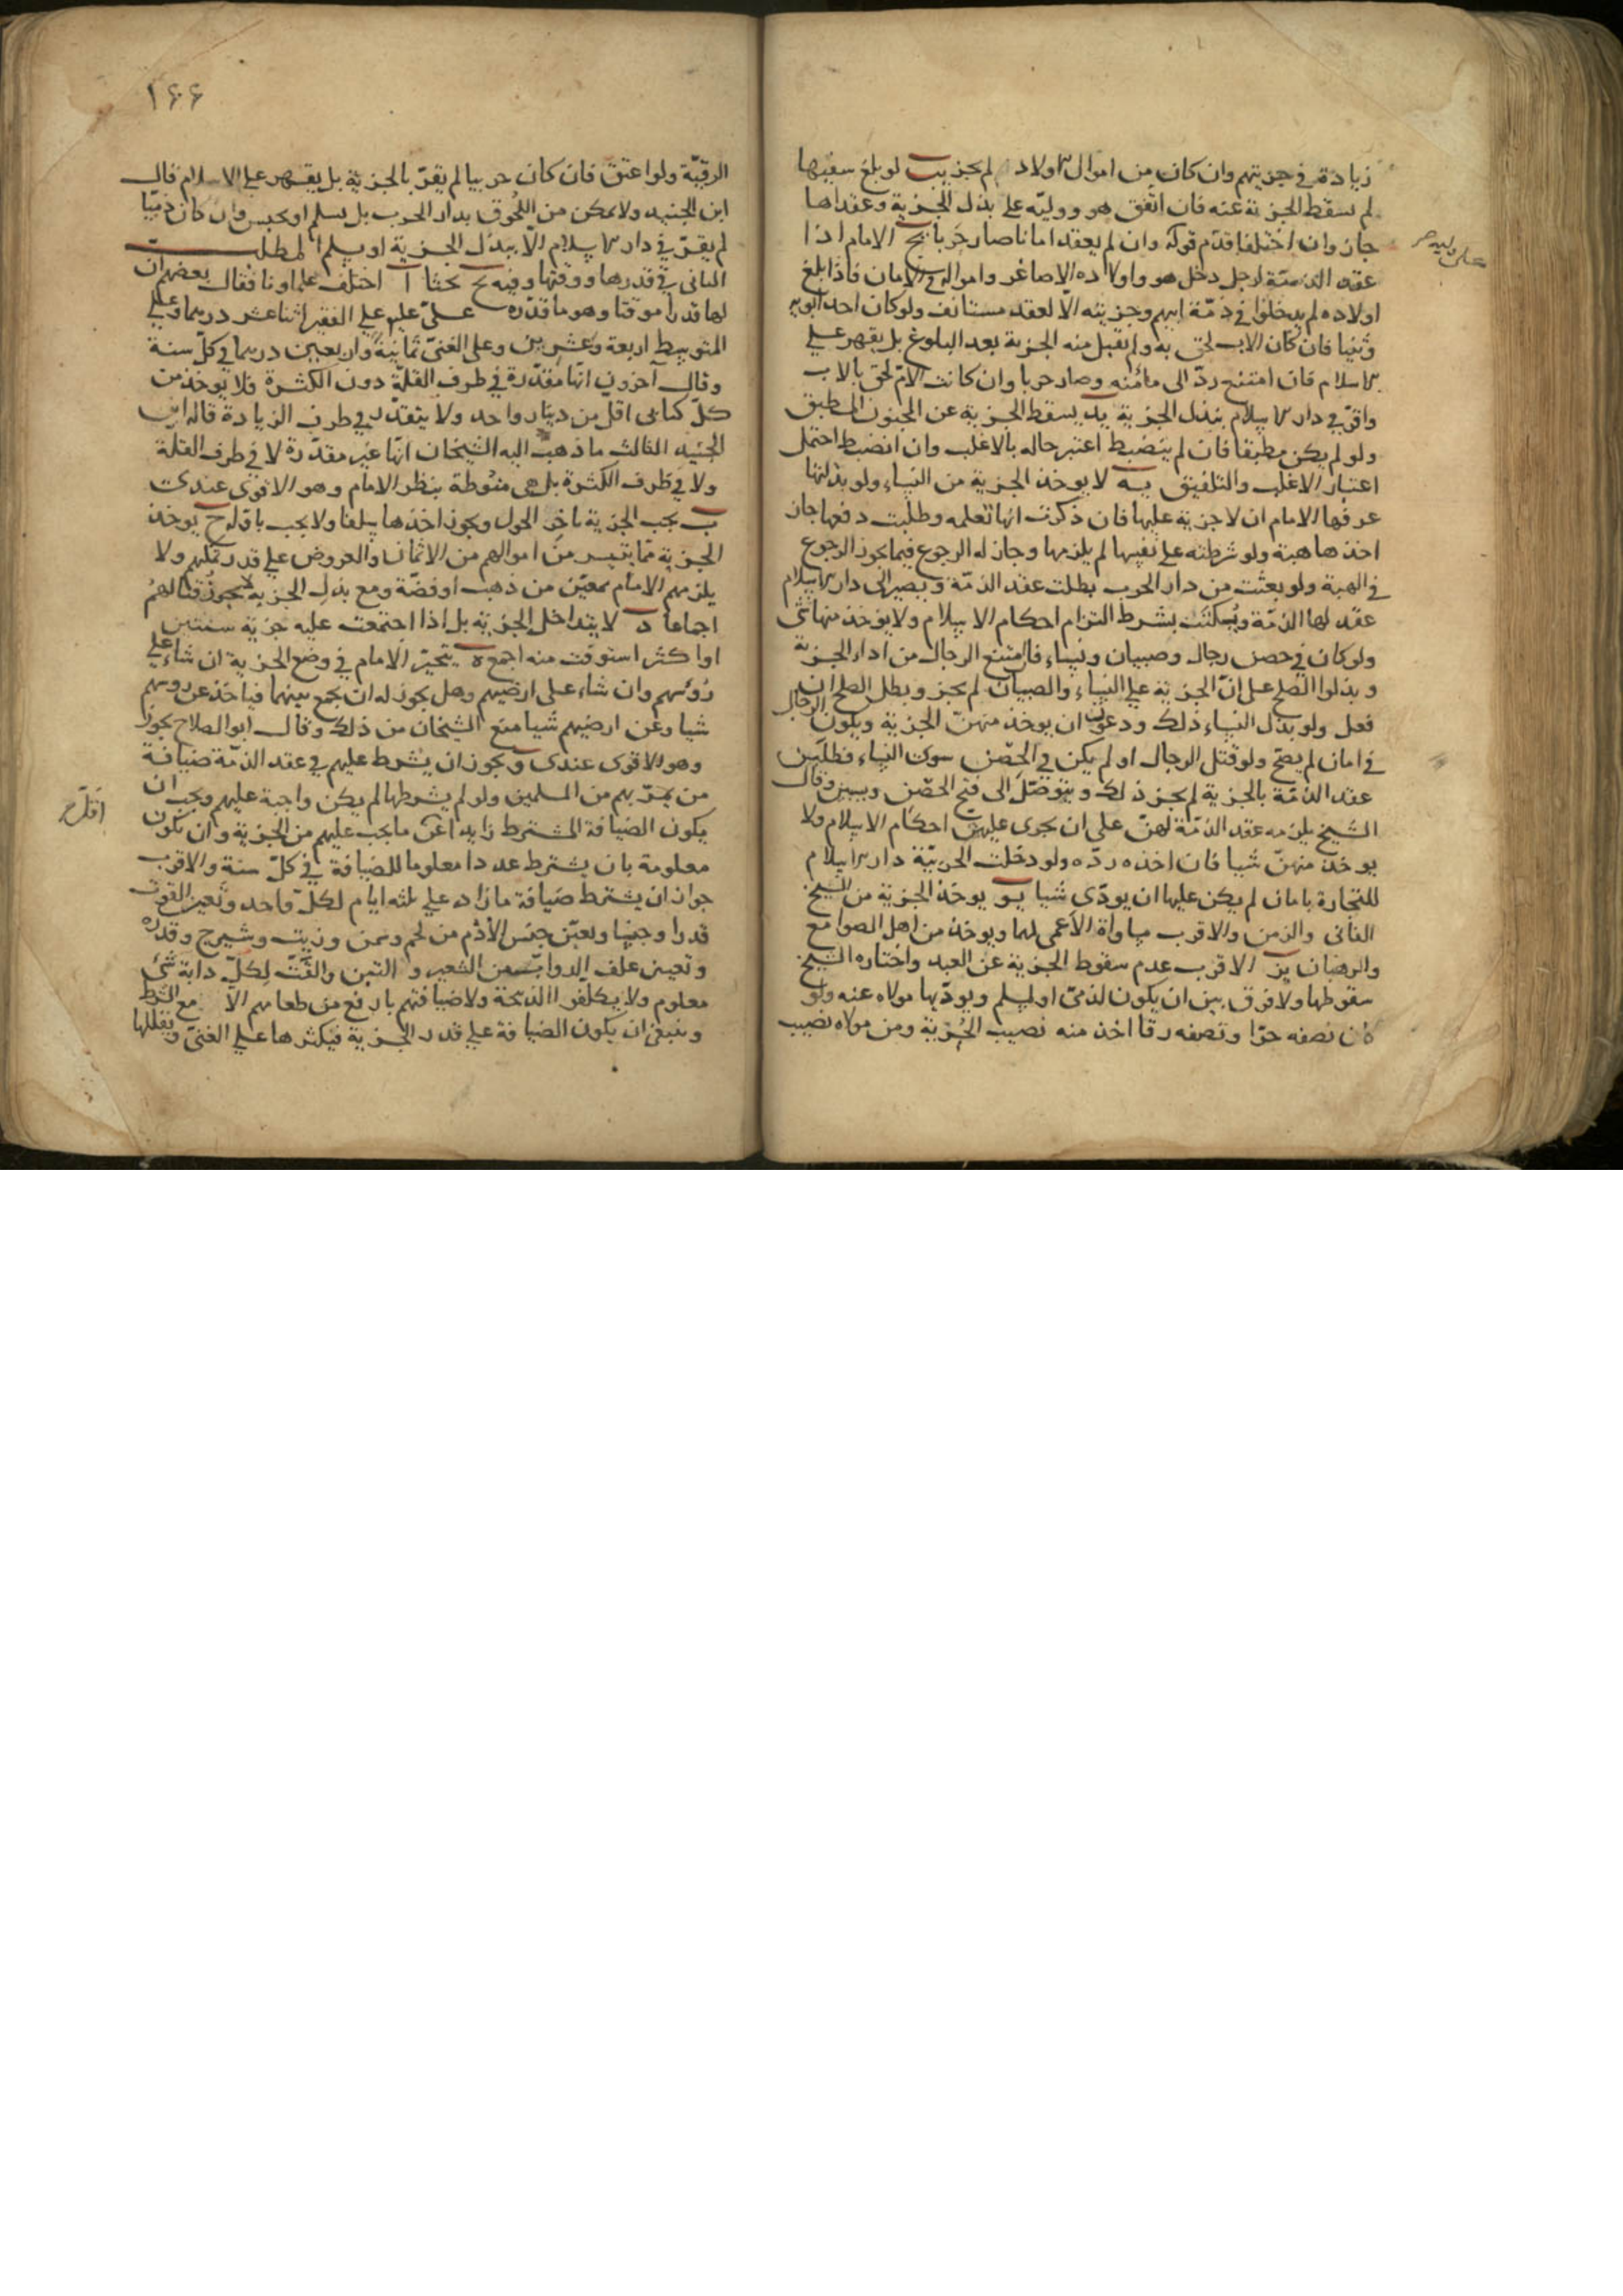 زيادة في جزيتهم وان كان من اموال الاولاد لم يجز يب لو بلغ سفيها
لم يسقط الجزية عنه فان اتفق هو ووليه على بذل الجزية وعقداها
جاز وان اختلفا قدم قوله وان لم يعقد امانا صار حربا يج الامام اذا
عقد الذمة لرجل دخل هو واولاده الاصاغر وامواله في الامان فاذا بلغ
اولاده لم يدخلوا في ذمة ابيهم وجزيته الا لعقد مستانف ولو كان احد ابويه
وثنيا فان كان الاب لحق به ولم تقبل منه الجزية بعد البلوغ بل يقهر على
الاسلام فان امتنع رد الى مأمنه وصار حربا وان كانت الام لحق بالاب
واقر في دار الاسلام ببذل الجزية يد يسقط الجزية عن المجنون المطبق
ولو لم يكن مطبقا فان لم ينضبط اعتبر حاله بالاغلب وان انضبط احتمل
اعتبار الاغلب والتلفيق يه لا يوخذ الجزية من النساء ولو بذلتها
عرفها الامام ان لا جزية عليها فان ذكرت انها تعلمه وطلبت دفعها جاز
اخذها هبة ولو شرطته على نفسها لم يلزمها وجاز له الرجوع فيما يجوز الرجوع
في الهبة ولو بعثت من دار الحرب بطلت عقد الذمة ويصير الى دار الاسلام
عقد لها الذمة ويسكنت بشرط التزام احكام الاسلام ولا يوخذ منها شئ
ولو كان في حصن رجال وصبيان ونساء فامتنع الرجال من اداء الجزية
وبذلوا الصلح على ان الجزية على النساء والصبيان لم يجز وبطل الصلح ان
فعل ولو بذل النساء ذلك ودعون ان يوخذ منهن الجزية ويكون الرجال
في امان لم يصح ولو قتل الرجال او لم يكن في الحصن سوى النساء فطلبن
عقد الذمة بالجزية لم يجز ذلك ويتوصل الى فتح الحصن ويسبين وقال
الشيخ يلزمه عقد الذمة لهن على ان يجرى عليهن احكام الاسلام ولا
يوخذ منهن شيا فان اخذه رده ولو دخلت الحربية دار الاسلام
للتجارة بامان لم يكن عليها ان يودى شيا يو يوخذ الجزية من الشيخ
الفانى والزمن والاقرب مساواة الاعمى لهما ويوخذ من اهل الصوامع
والرهبان يز الاقرب عدم سقوط الجزية عن العبد واختاره الشيخ
سقوطها ولا فرق بين ان يكون لذمى او لمسلم ويوديها مولاه عنه ولو
كان نصفه حرا ونصفه رقا اخذ منه نصيب الحرية ومن مولاه نصيب
١۶۶
الرقبة ولو اعتق فان كان حربيا لم يقر بالجزية بل يقهر على الاسلام قال
ابن الجنيد ولا يمكن من اللحوق بدار الحرب بل يسلم او يحبس وان كان ذميا
لم يقر في دار الاسلام الا ببذل الجزية او يسلم المطلب
الثانى في قدرها ووقتها وفيه بحثا ا اختلف علماونا فقال بعضهم ان
لها قدرا موقتا وهو ما قدره على عليه على الفقير اثنا عشر درهما وعلى
المتوسط اربعة وعشرين وعلى الغنى ثمانية واربعين درهما في كل سنة
وقال آخرون انها مقدرة في طرف القلة دون الكثرة فلا يوخذ من
كل كتابى اقل من دينار واحد ولا يتقدر في طرف الزيادة قاله ابن
الجنيد الثالث ما ذهب اليه الشيخان انها غير مقدرة لا في طرف القلة
ولا في طرف الكثرة بل هى منوطة بنظر الامام وهو الاقوى عندى
ب يجب الجزية باخر الحول ويجوز اخذها سلفا ولا يجب باوله ج يوخذ
الجزية مما يتيسر من اموالهم من الاثمان والعروض على قدر تمكنهم ولا
يلزمهم الامام بمعين من ذهب او فضة ومع بذل الجزية لا يجوز قتالهم
اجماعا د لا يتداخل الجزية بل اذا اجتمعت عليه جزية سنتين
او اكثر استوفت منه اجمع ه يتخير الامام في وضع الجزية ان شاء على
رؤسهم وان شاء على ارضيهم وهل يجوز له ان يجمع بينهما فياخذ عن روسهم
شيا وعن ارضيهم شيا منع الشيخان من ذلك وقال ابو الصلاح يجوز
وهو الاقوى عندى و يجوز ان يشرط عليهم في عقد الذمة ضيافة
من يمر بهم من المسلمين ولو لم يشرطها لم يكن واجبة عليهم ويجب ان
يكون الضيافة المشترط زايدا عن ما يجب عليهم من الجزية وان تكون
معلومة بان يشترط عددا معلوما للضيافة في كل سنة والاقرب
جواز ان يشترط ضيافة ما زاد على ثلثه ايام لكل واحد وتعين القوت
قدرا وجنسا وتعين جنس الأدم من لحم وسمن وزيت وشيرج وقدره
وتعين علف الدواب من الشعير والتبن والقت لكل دابة شئ
معلوم ولا يكلفوا الذبيحة ولا ضيافتهم بارفع من طعامهم الا مع الشرط
وينبغى ان يكون الضيافة على قدر الجزية فيكثرها على الغنى ويقللها